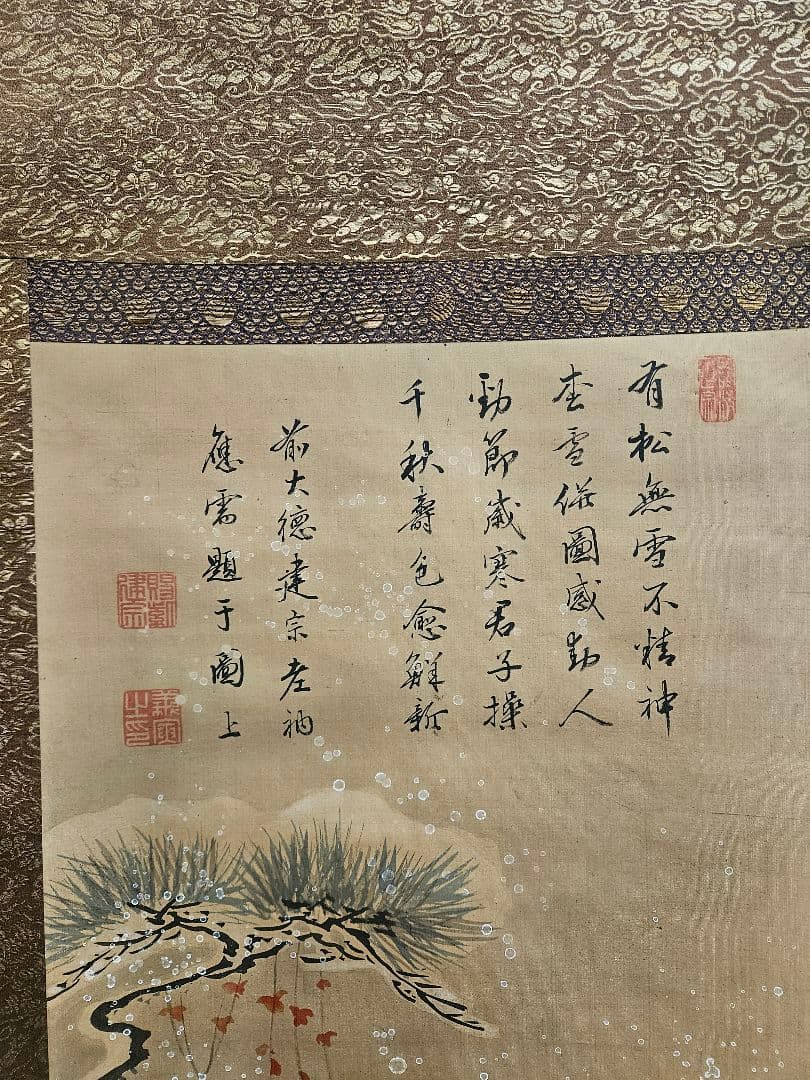 有松無雪不精神
松雪併圖感動人
勁節歲寒君子操
千秋壽色愈鮮新
前大德建宗老衲
應需題于圖上